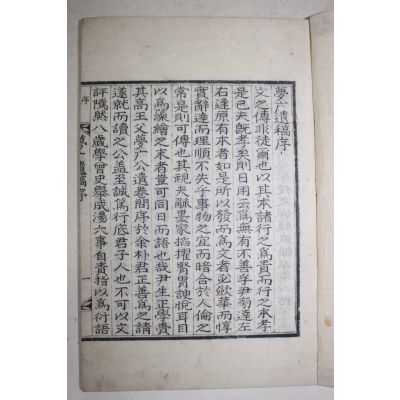 夢广遺稿序
文之傳非徒爾也以其本諸行之爲貴而行之本孝
是已夫旣孝矣則日用云爲無有不善孚尹旁達左
右逢原有本者如是所以發而爲文者必斂華而惇
實辭達而理順不失乎事物之宜而暗合於人倫之
常是則可傳也其視夫墨家搯擢腎胃諛悅耳目
以爲藻繪之末者豈可同日而語也哉尹生正學賫
其高王父夢广公遺卷問序於余朴君正善爲之請
遂就而讀之公盖至誠篤行底君子人也不可以文
評隲然八歲學曾史擧成湯六事自責指以爲衍語
序